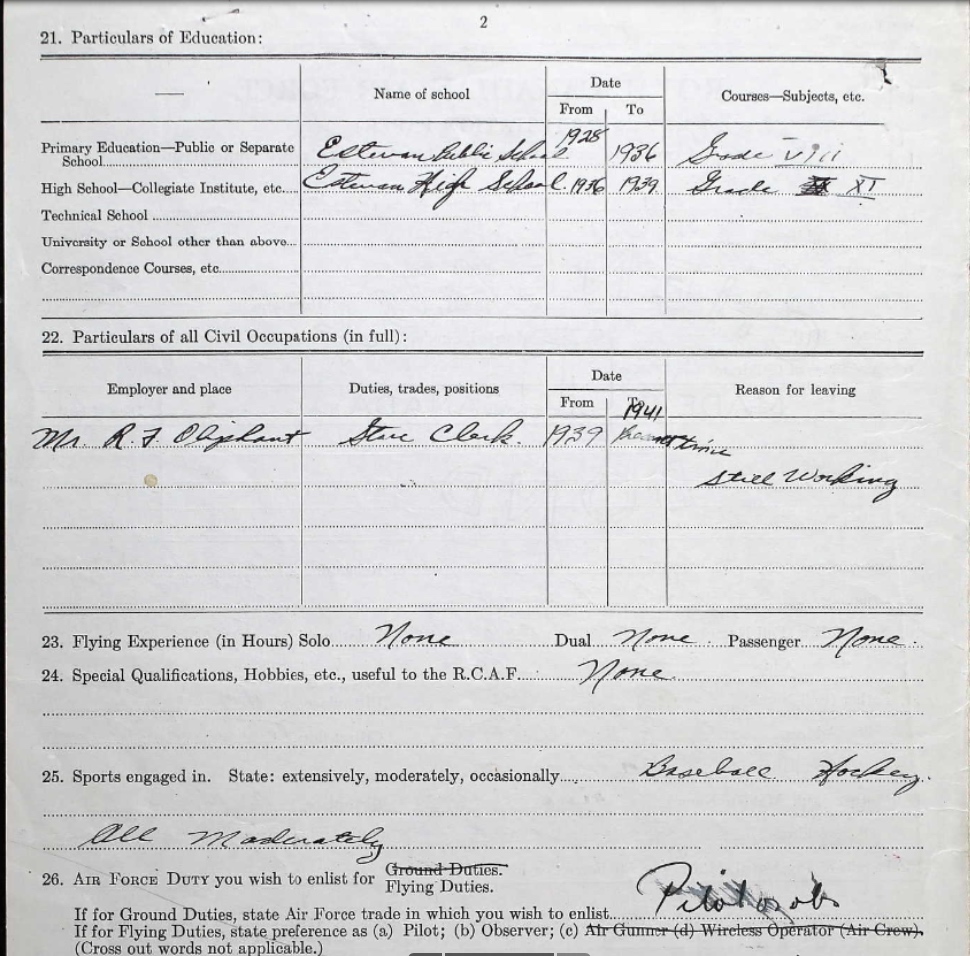 2
21. Particulars of Education:
Name of school
Date
From To
Courses—Subjects, etc.
Primary Education—Public or Separate
School Estevan Public School 1928 1936 Grade VIII
High School—Collegiate Institute, etc. Estevan High School. 1936 1939 Grade XI
Technical School
University or School other than above
Correspondence Courses, etc.
22. Particulars of all Civil Occupations (in full):
Employer and place
Duties, trades, positions
Date
From To
Reason for leaving
1941
Mr. R. F. Oliphant Store Clerk. 1939
Still Working
23. Flying Experience (in Hours) Solo None Dual None Passenger None
24. Special Qualifications, Hobbies, etc., useful to the R.C.A.F. None
25. Sports engaged in. State: extensively, moderately, occasionally Baseball Hockey.
All Moderately
26. AIR FORCE DUTY you wish to enlist for Ground Duties.
Flying Duties.
Pilot or obs
If for Ground Duties, state Air Force trade in which you wish to enlist
If for Flying Duties, state preference as (a) Pilot; (b) Observer; (c) Air Gunner (d) Wireless Operator (Air Crew).
(Cross out words not applicable.)